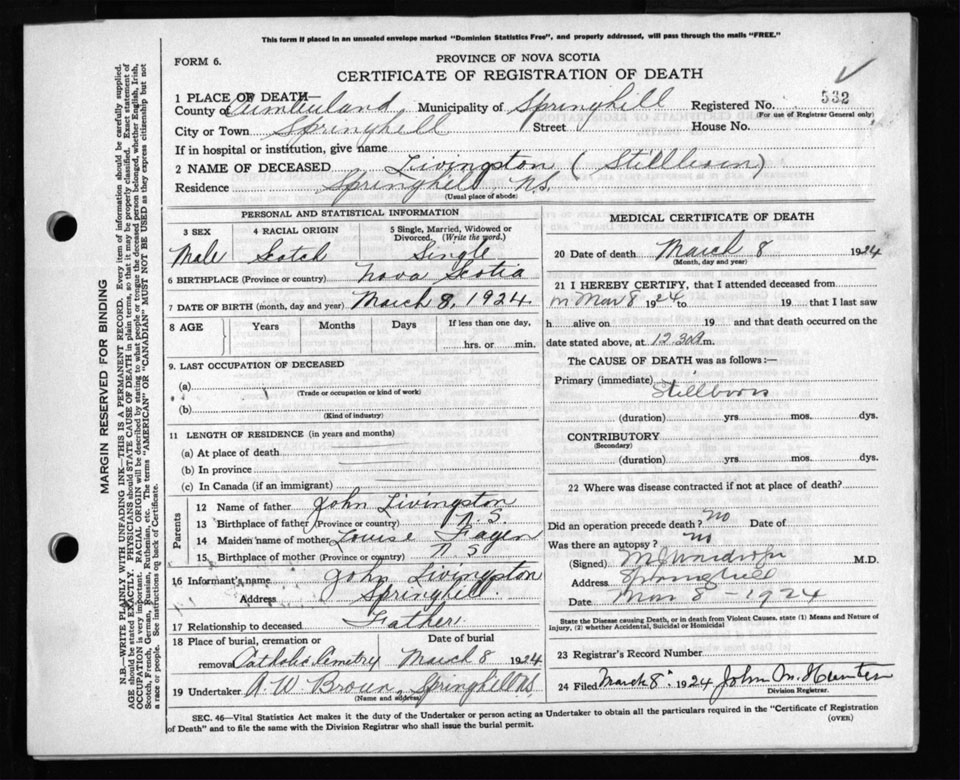 This form if placed in an unsealed envelope marked "Dominion Statistics Free", and properly addressed, will pass through the mails "FREE."
FORM 6.
PROVINCE OF NOVA SCOTIA
CERTIFICATE OF REGISTRATION OF DEATH
1 PLACE OF DEATH—
County of Cumberland Municipality of Springhill Registered No. 532
(For use of Registrar General only)
City or Town Springhill Street House No.
If in hospital or institution, give name
2 NAME OF DECEASED Livingston (Stillborn)
Residence Springhill N.S.
(Usual place of abode)
PERSONAL AND STATISTICAL INFORMATION
3 SEX 4 RACIAL ORIGIN 5 Single, Married, Widowed or Divorced. (Write the word.)
Male Scotch Single
6 BIRTHPLACE (Province or country) Nova Scotia
7 DATE OF BIRTH (month, day and year) March 8, 1924
8 AGE Years Months Days If less than one day,
hrs. or min.
9. LAST OCCUPATION OF DECEASED
(a)
(Trade or occupation or kind of work)
(b)
(Kind of industry)
11 LENGTH OF RESIDENCE (in years and months)
(a) At place of death
(b) In province
(c) In Canada (if an immigrant)
Parents
12 Name of father John Livingston
13 Birthplace of father (Province or country) N.S.
14 Maiden name of mother Louise Fagen
15 Birthplace of mother (Province or country) N S
16 Informant's name John Livingston
Address Springhill.
17 Relationship to deceased Father.
18 Place of burial, cremation or removal Catholic Cemetry Date of burial March 8 1924
19 Undertaker A. W. Brown, Springhill NS
(Name and address)
MEDICAL CERTIFICATE OF DEATH
20 Date of death March 8 1924
(Month, day and year)
21 I HEREBY CERTIFY, that I attended deceased from
m Mar 8 1924 to 19 that I last saw
h alive on 19 and that death occurred on the
date stated above, at 12.30 a m.
The CAUSE OF DEATH was as follows:—
Primary (immediate) Stillborn
(duration) yrs. mos. dys.
CONTRIBUTORY
(Secondary)
(duration) yrs. mos. dys.
22 Where was disease contracted if not at place of death?
Did an operation precede death? No Date of
Was there an autopsy? No
(Signed) M.D.
Address Springhill
Date Mar 8 - 1924
State the Disease causing Death, or in death from Violent Causes, state (1) Means and Nature of Injury, (2) whether Accidental, Suicidal or Homicidal
23 Registrar's Record Number
24 Filed March 8" 1924 John M. Hunter
Division Registrar.
SEC. 46—Vital Statistics Act makes it the duty of the Undertaker or person acting as Undertaker to obtain all the particulars required in the "Certificate of Registration
of Death" and to file the same with the Division Registrar who shall issue the burial permit.
(OVER)
MARGIN RESERVED FOR BINDING
N.B.—WRITE PLAINLY WITH UNFADING INK—THIS IS A PERMANENT RECORD. Every item of information should be carefully supplied.
AGE should be stated EXACTLY. PHYSICIANS should STATE CAUSE OF DEATH in plain terms, so that it may be properly classified. Exact statement of
OCCUPATION is very important. RACIAL ORIGIN will be described by stating to what people or tongue the deceased person belonged, whether English, Irish,
Scotch, French, German, Russian, Ruthenian, etc. The terms "AMERICAN" or "CANADIAN" MUST NOT BE USED as they express citizenship but not
a race or people. See instructions on back of Certificate.